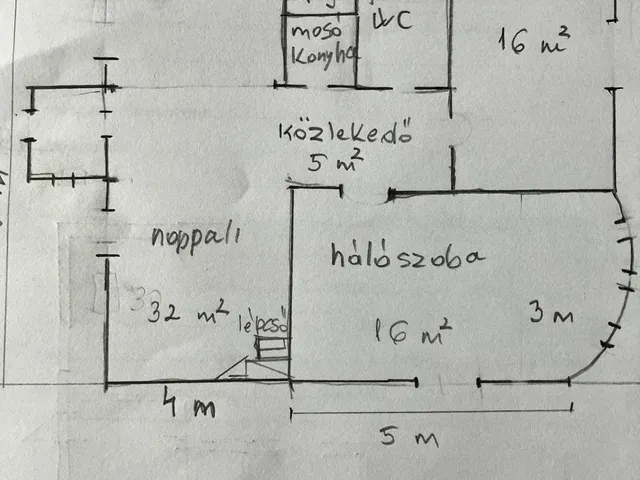 WC
mosó
Konyha
16 m²
közlekedő
5 m²
nappali
hálószoba
32 m²
lépcső
16 m²
3 m
4 m
5 m